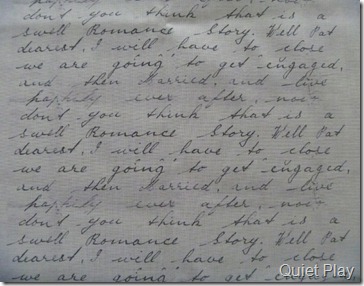 happily ever after, now
don't "you think" that is a
swell Romance Story. Well Pat
dearest, I will have to close
we are going" to get "engaged,
and then Married, and live
happily ever after, now
don't "you think" that is a
swell Romance Story. Well Pat
dearest, I will have to close
we are going" to get "engaged,
and then Married, and live
happily ever after, now
don't "you think" that is a
swell Romance Story. Well Pat
dearest, I will have to close
we are going" to get "engaged,
Quiet Play